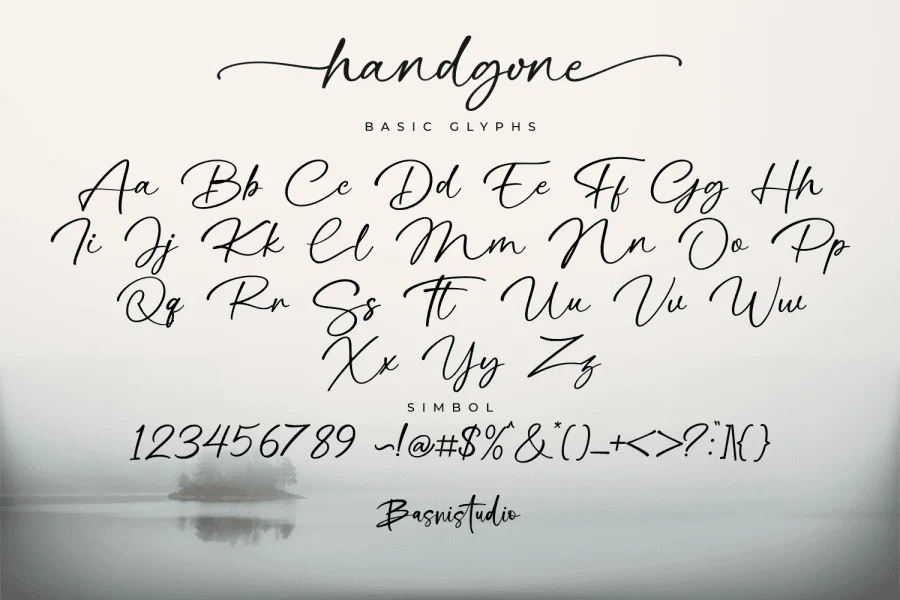 handgone
BASIC GLYPHS
Aa Bb Cc Dd Ee Ff Gg Hh
Ii Jj Kk Ll Mm Nn Oo Pp
Qq Rr Ss Tt Uu Vv Ww
Xx Yy Zz
SIMBOL
123456789 ~!@#$%^&*()_+<>?:"|\{}
Basnistudio